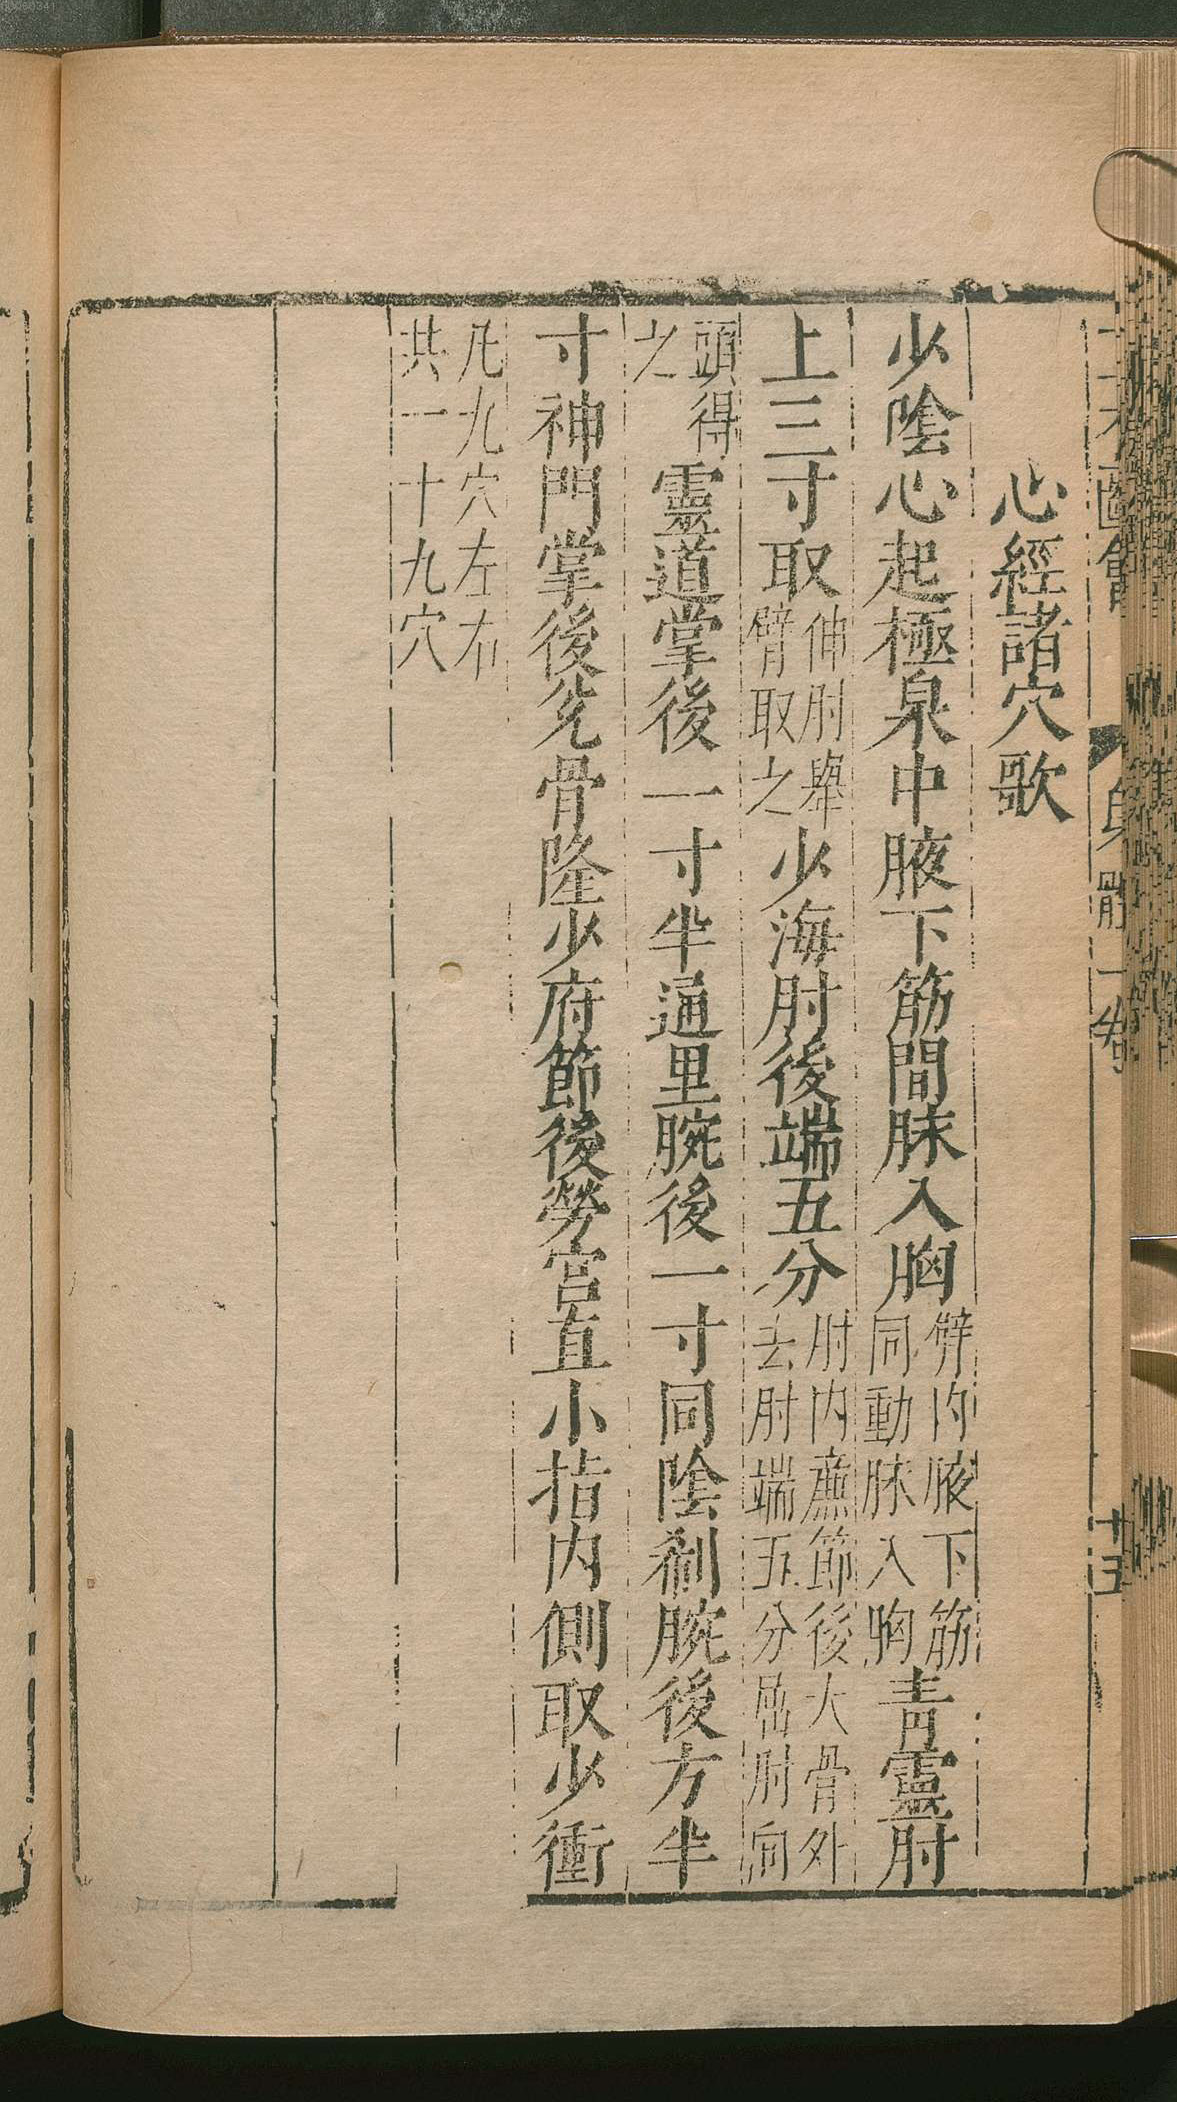 心經諸穴歌
少陰心起極泉中腋下筋間脉入胸臂内腋下筋同動脉入胸青靈肘
上三寸取伸肘舉臂取之少海肘後端五分肘内廉節後大骨外去肘端五分屈肘向
頭得之靈道掌後一寸半通里腕後一寸同陰郄腕後方半
寸神門掌後兊骨隆少府節後勞宫直小指内側取少衝
凡九穴左右
共一十九穴
身體一卷
十五